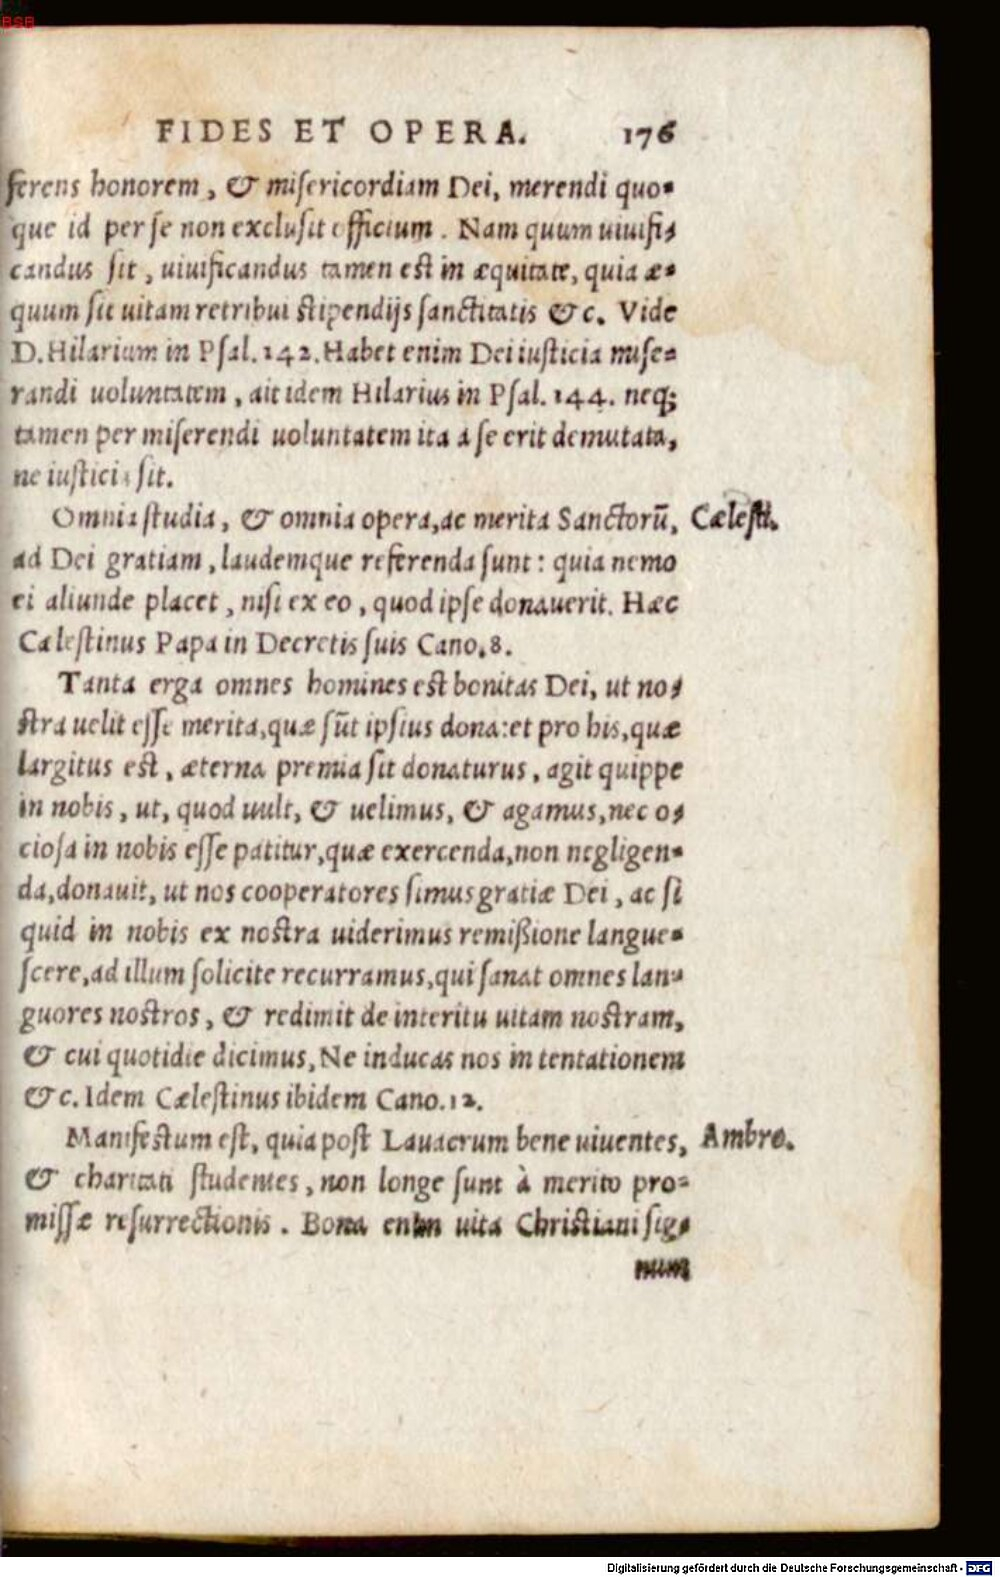 BSB
FIDES ET OPERA. 176
ferens honorem, & misericordiam Dei, merendi quo-
que id per se non exclusit officium. Nam quum uiuifi-
candus sit, uiuificandus tamen est in æquitate, quia æ-
quum sit uitam retribui stipendijs sanctitatis &c. Vide
D. Hilarium in Psal. 142. Habet enim Dei iusticia mise-
randi uoluntatem, ait idem Hilarius in Psal. 144. neq;
tamen per miserendi uoluntatem ita à se erit demutata,
ne iusticia sit.
Omnia studia, & omnia opera, ac merita Sanctorũ, Cælesti.
ad Dei gratiam, laudemque referenda sunt: quia nemo
ei aliunde placet, nisi ex eo, quod ipse donauerit. Hæc
Cælestinus Papa in Decretis suis Cano. 8.
Tanta erga omnes homines est bonitas Dei, ut no-
stra uelit esse merita, quæ sũt ipsius dona: et pro his, quæ
largitus est, æterna premia sit donaturus, agit quippe
in nobis, ut, quod uult, & uelimus, & agamus, nec o-
ciosa in nobis esse patitur, quæ exercenda, non negligen-
da, donauit, ut nos cooperatores simus gratiæ Dei, ac si
quid in nobis ex nostra uiderimus remißione langue-
scere, ad illum solicite recurramus, qui sanat omnes lan-
guores nostros, & redimit de interitu uitam nostram,
& cui quotidie dicimus, Ne inducas nos in tentationem
&c. Idem Cælestinus ibidem Cano. 12.
Manifestum est, quia post Lauacrum bene uiuentes, Ambro.
& charitati studentes, non longe sunt à merito pro-
missæ resurrectionis. Bona enim uita Christiani sig-
num
Digitalisierung gefördert durch die Deutsche Forschungsgemeinschaft - DFG